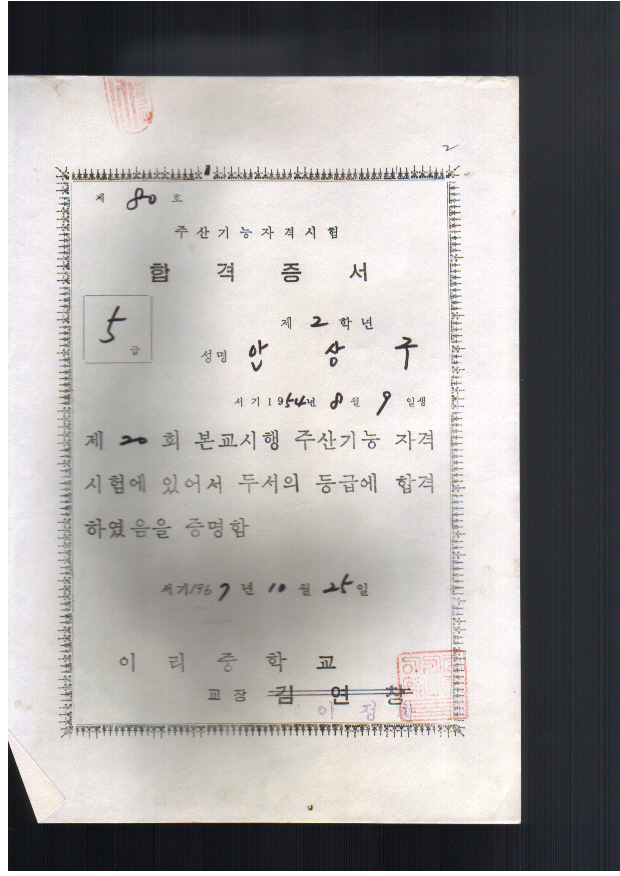 2
제 80 호
주산기능자격시험
합격증서
5급
제 2 학년
성명 안상구
서기 1954년 8월 9일생
제 20 회 본교시행 주산기능 자격
시험에 있어서 두서의 등급에 합격
하였음을 증명함
서기 1967년 10월 25일
이리중학교
교장 김연창
이정